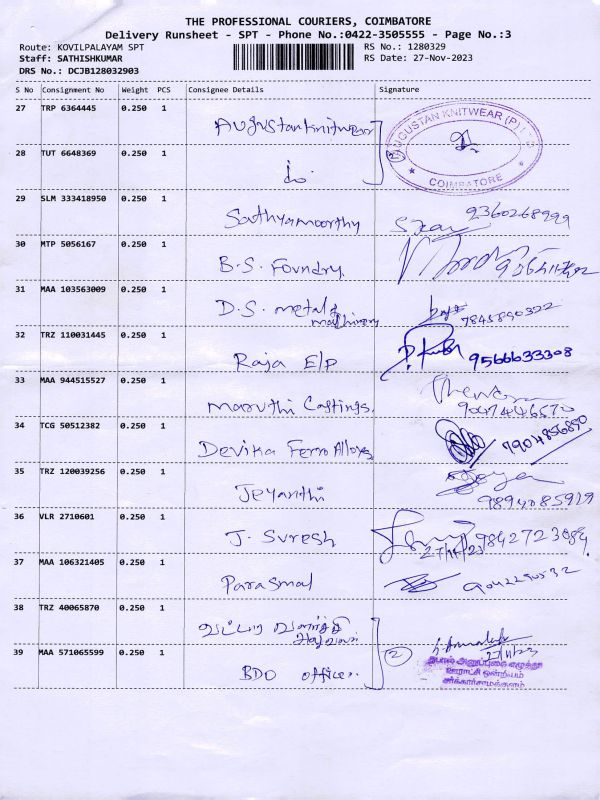 THE PROFESSIONAL COURIERS, COIMBATORE
Delivery Runsheet - SPT - Phone No.:0422-3505555 - Page No.:3
Route: KOVILPALAYAM SPT
RS No.: 1280329
Staff: SATHISHKUMAR
RS Date: 27-Nov-2023
DRS No.: DCJB128032903
S No Consignment No Weight PCS Consignee Details Signature
27 TRP 6364445 0.250 1 Augustan Knitwear
AUGUSTAN KNITWEAR (P)
COIMBATORE
28 TUT 6648369 0.250 1 do
29 SLM 333418950 0.250 1 Sathyamoorthy 9360268999
30 MTP 5056167 0.250 1 B.S. Foundry
31 MAA 103563009 0.250 1 D.S. metal & machinery 7845890322
32 TRZ 110031445 0.250 1 Raja E/P 9566633308
33 MAA 944515527 0.250 1 Maruthi Castings
34 TCG 50512382 0.250 1 Devika Ferro Alloys 7904856850
35 TRZ 120039256 0.250 1 Jeyanthi 9894085929
36 VLR 2710601 0.250 1 J. Suresh 9842723084
27/11/23
37 MAA 106321405 0.250 1 Parasmal
38 TRZ 40065870 0.250 1 வட்டார வளர்ச்சி அலுவலர்
39 MAA 571065599 0.250 1 BDO officer 2
27/11/23
தபால் அனுப்புகை எழுத்தர்
ஊராட்சி ஒன்றியம்
சர்க்கார்சாமக்குளம்